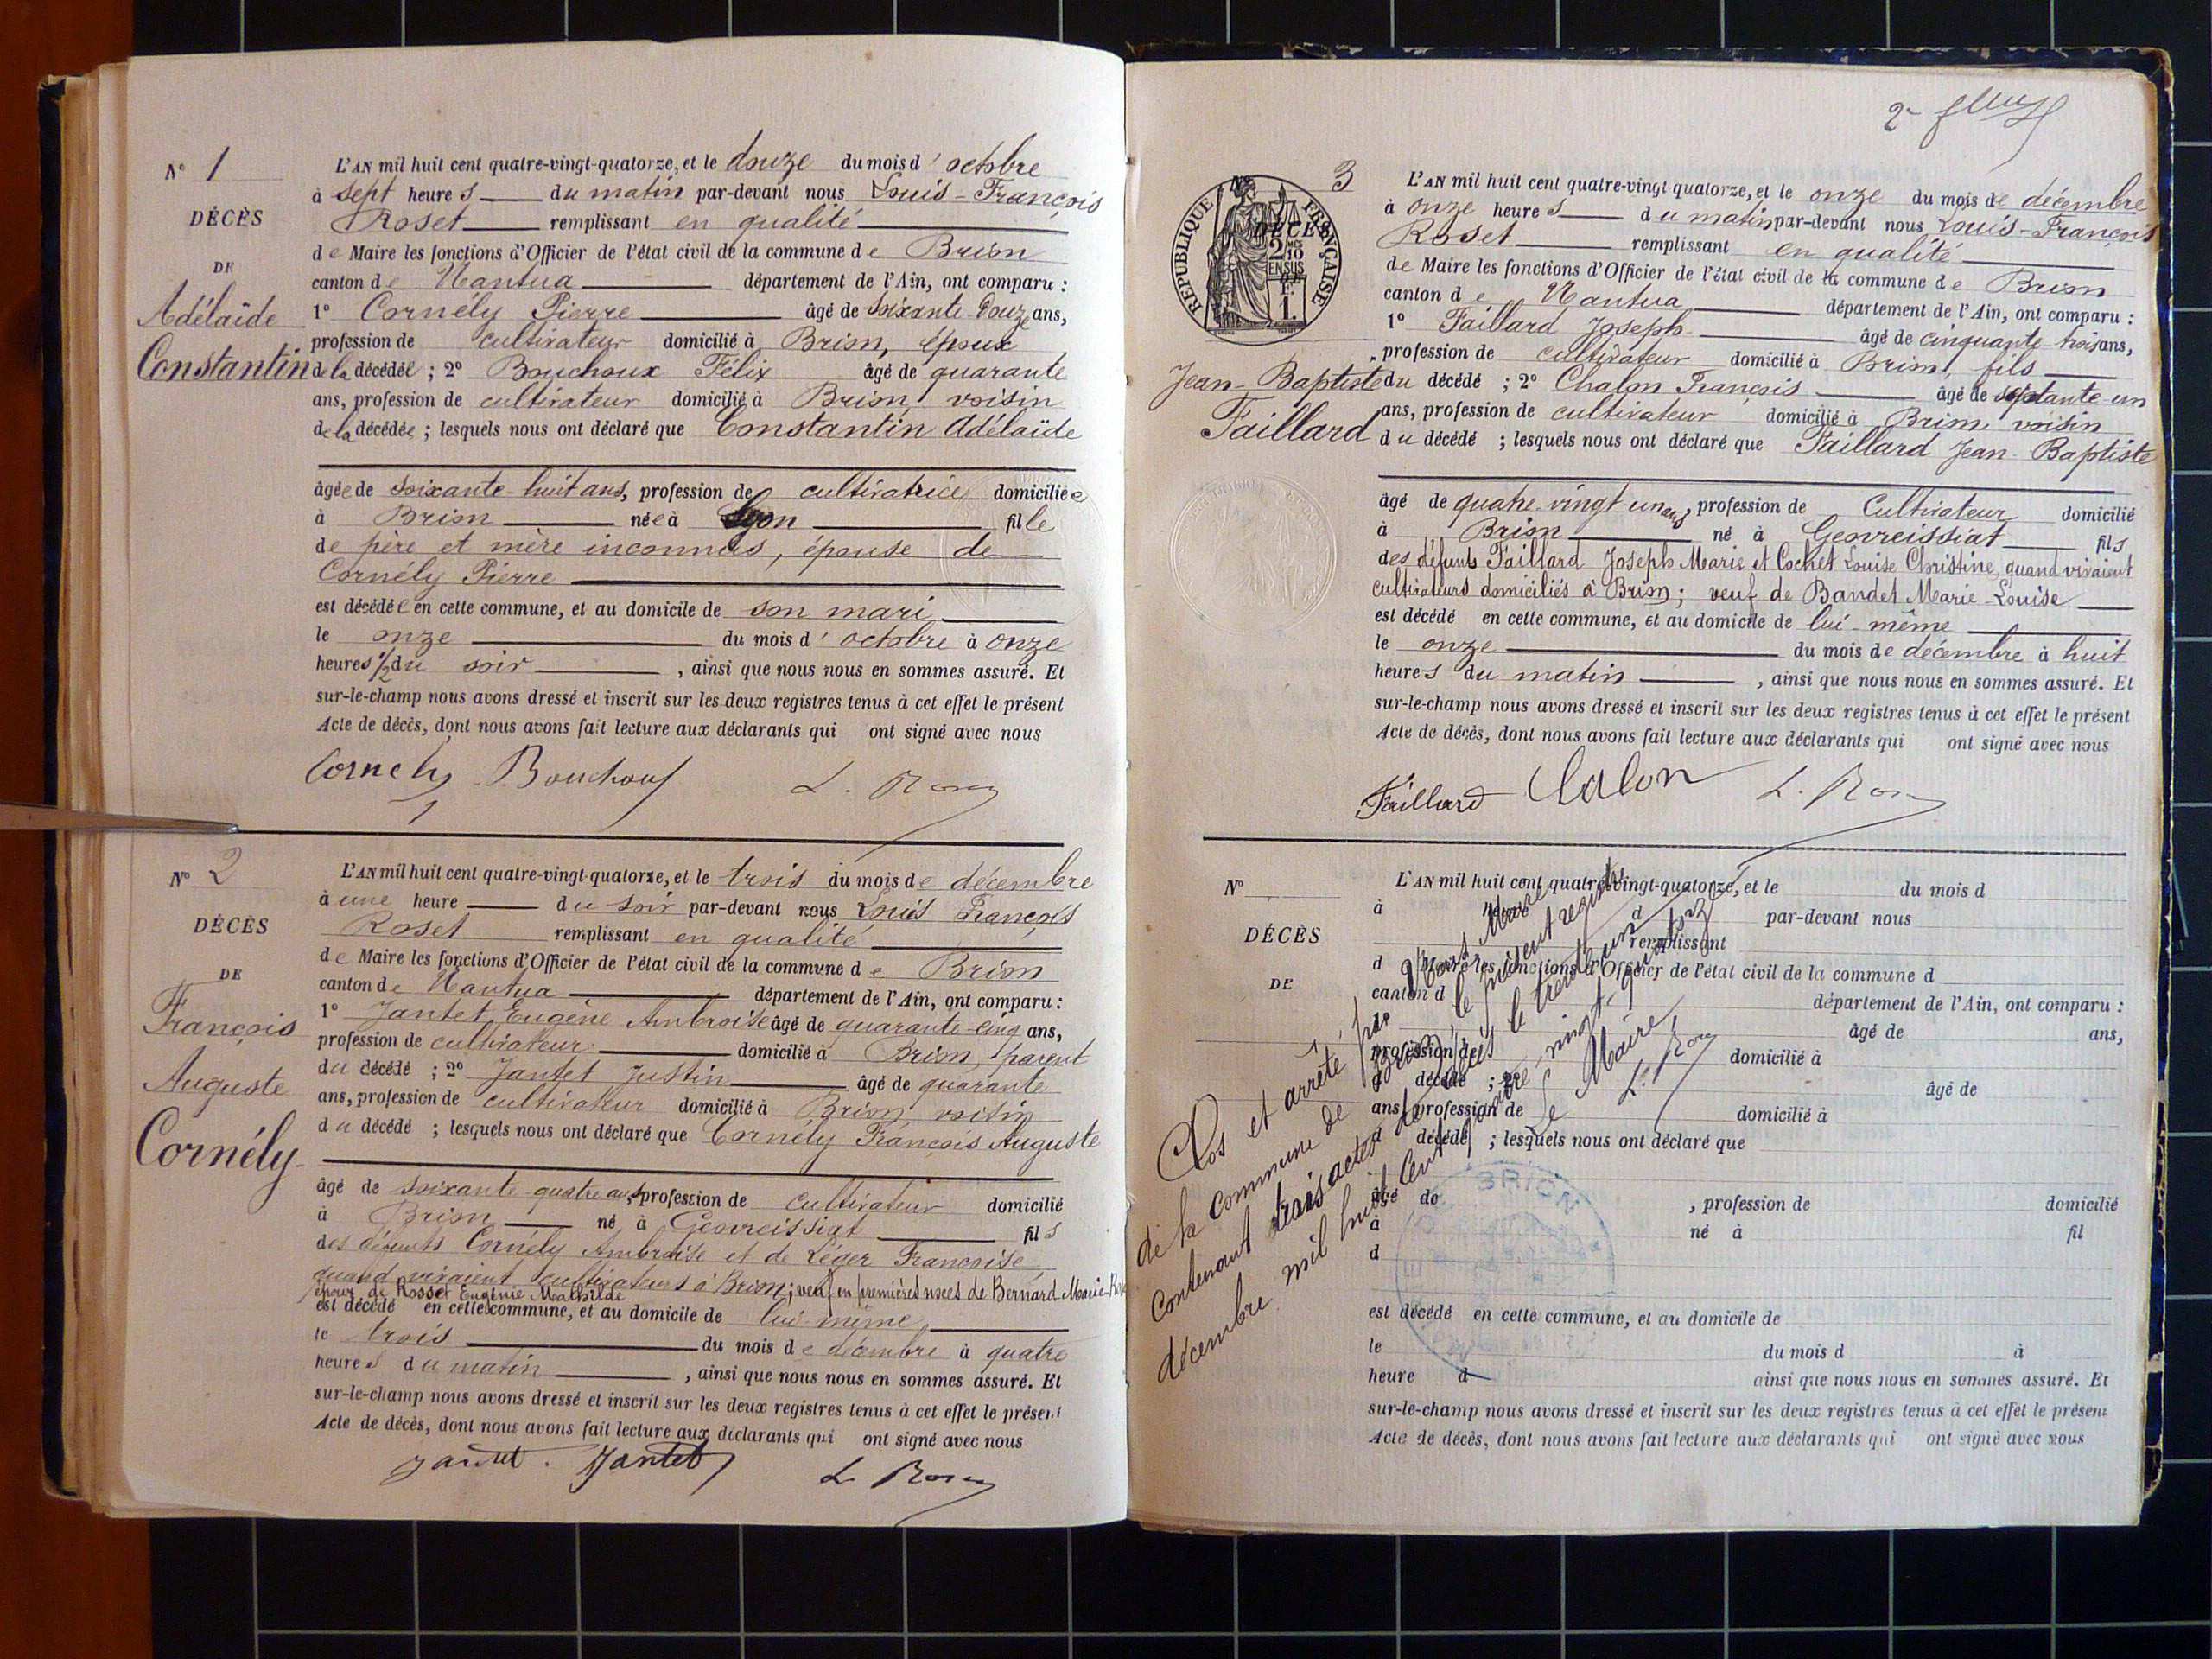 N° 1
DÉCÈS
DE
Adélaïde
Constantin
L'AN mil huit cent quatre-vingt-quatorze, et le douze du mois d' octobre
à sept heures du matin par-devant nous Louis-François
Roset remplissant en qualité
de Maire les fonctions d'Officier de l'état civil de la commune de Brion
canton de Nantua département de l'Ain, ont comparu :
1° Cornély Pierre âgé de soixante-douze ans,
profession de cultivateur domicilié à Brion, époux
de la décédée ; 2° Bouchoux Félix âgé de quarante
ans, profession de cultivateur domicilié à Brion, voisin
de la décédée ; lesquels nous ont déclaré que Constantin Adélaïde
âgée de soixante-huit ans, profession de cultivatrice domiciliée
à Brion née à Lyon fille
de père et mère inconnus, épouse de
Cornély Pierre
est décédée en cette commune, et au domicile de son mari
le onze du mois d' octobre à onze
heures 1/2 du soir , ainsi que nous nous en sommes assuré. Et
sur-le-champ nous avons dressé et inscrit sur les deux registres tenus à cet effet le présent
Acte de décès, dont nous avons fait lecture aux déclarants qui ont signé avec nous
Cornely Bouchoux L. Roset
N° 2
DÉCÈS
DE
François
Auguste
Cornély
L'AN mil huit cent quatre-vingt-quatorze, et le trois du mois de décembre
à une heure du soir par-devant nous Louis François
Roset remplissant en qualité
de Maire les fonctions d'Officier de l'état civil de la commune de Brion
canton de Nantua département de l'Ain, ont comparu :
1° Jantet Eugène Ambroise âgé de quarante-cinq ans,
profession de cultivateur domicilié à Brion, parent
du décédé ; 2° Jantet Justin âgé de quarante
ans, profession de cultivateur domicilié à Brion, voisin
du décédé ; lesquels nous ont déclaré que Cornély François Auguste
âgé de soixante-quatre ans, profession de cultivateur domicilié
à Brion né à Géovreissiat fils
des défunts Cornély Ambroise et de Léger Françoise,
quand vivaient cultivateurs à Brion; veuf en premières noces de Bernard Marie-
époux de Rosset Eugénie Mathilde
est décédé en cette commune, et au domicile de lui-même
le trois du mois de décembre à quatre
heures du matin , ainsi que nous nous en sommes assuré. Et
sur-le-champ nous avons dressé et inscrit sur les deux registres tenus à cet effet le présent
Acte de décès, dont nous avons fait lecture aux déclarants qui ont signé avec nous
Jantet. Jantet L. Roset
3
RÉPUBLIQUE FRANÇAISE
DÉCÈS
Jean-Baptiste
Faillard
L'AN mil huit cent quatre-vingt quatorze, et le onze du mois de décembre
à onze heures du matin par-devant nous Louis-François
Roset remplissant en qualité
de Maire les fonctions d'Officier de l'état civil de la commune de Brion
canton de Nantua département de l'Ain, ont comparu :
1° Faillard Joseph âgé de cinquante-trois ans,
profession de cultivateur domicilié à Brion, fils
du décédé ; 2° Chalon François âgé de septante-un
ans, profession de cultivateur domicilié à Brion voisin
du décédé ; lesquels nous ont déclaré que Faillard Jean-Baptiste
âgé de quatre-vingt un ans, profession de Cultivateur domicilié
à Brion né à Géovreissiat fils
des défunts Faillard Joseph Marie et Cochet Louise Christine, quand vivaient
cultivateurs domiciliés à Brion; veuf de Bandet Marie-Louise
est décédé en cette commune, et au domicile de lui-même
le onze du mois de décembre à huit
heures du matin , ainsi que nous nous en sommes assuré. Et
sur-le-champ nous avons dressé et inscrit sur les deux registres tenus à cet effet le présent
Acte de décès, dont nous avons fait lecture aux déclarants qui ont signé avec nous
Faillard Chalon L. Roset
N°
DÉCÈS
DE
L'AN mil huit cent quatre-vingt-quatorze, et le du mois d
à heure d par-devant nous
remplissant
d Maire les fonctions d'Officier de l'état civil de la commune d
canton d département de l'Ain, ont comparu :
1° âgé de ans,
profession de domicilié à
d décédé ; 2° âgé de
ans, profession de domicilié à
d décédé ; lesquels nous ont déclaré que
âgé de , profession de domicilié
à né à fil
d
est décédé en cette commune, et au domicile de
le du mois d à
heure d ainsi que nous nous en sommes assuré. Et
sur-le-champ nous avons dressé et inscrit sur les deux registres tenus à cet effet le présent
Acte de décès, dont nous avons fait lecture aux déclarants qui ont signé avec nous
Clos et arrêté par Nous Maire
de la commune de Brion, le présent registre
contenant trois actes de décès le trente-un
décembre mil huit cent quatre-vingt-quatorze
Le Maire
L. Roset
BRION